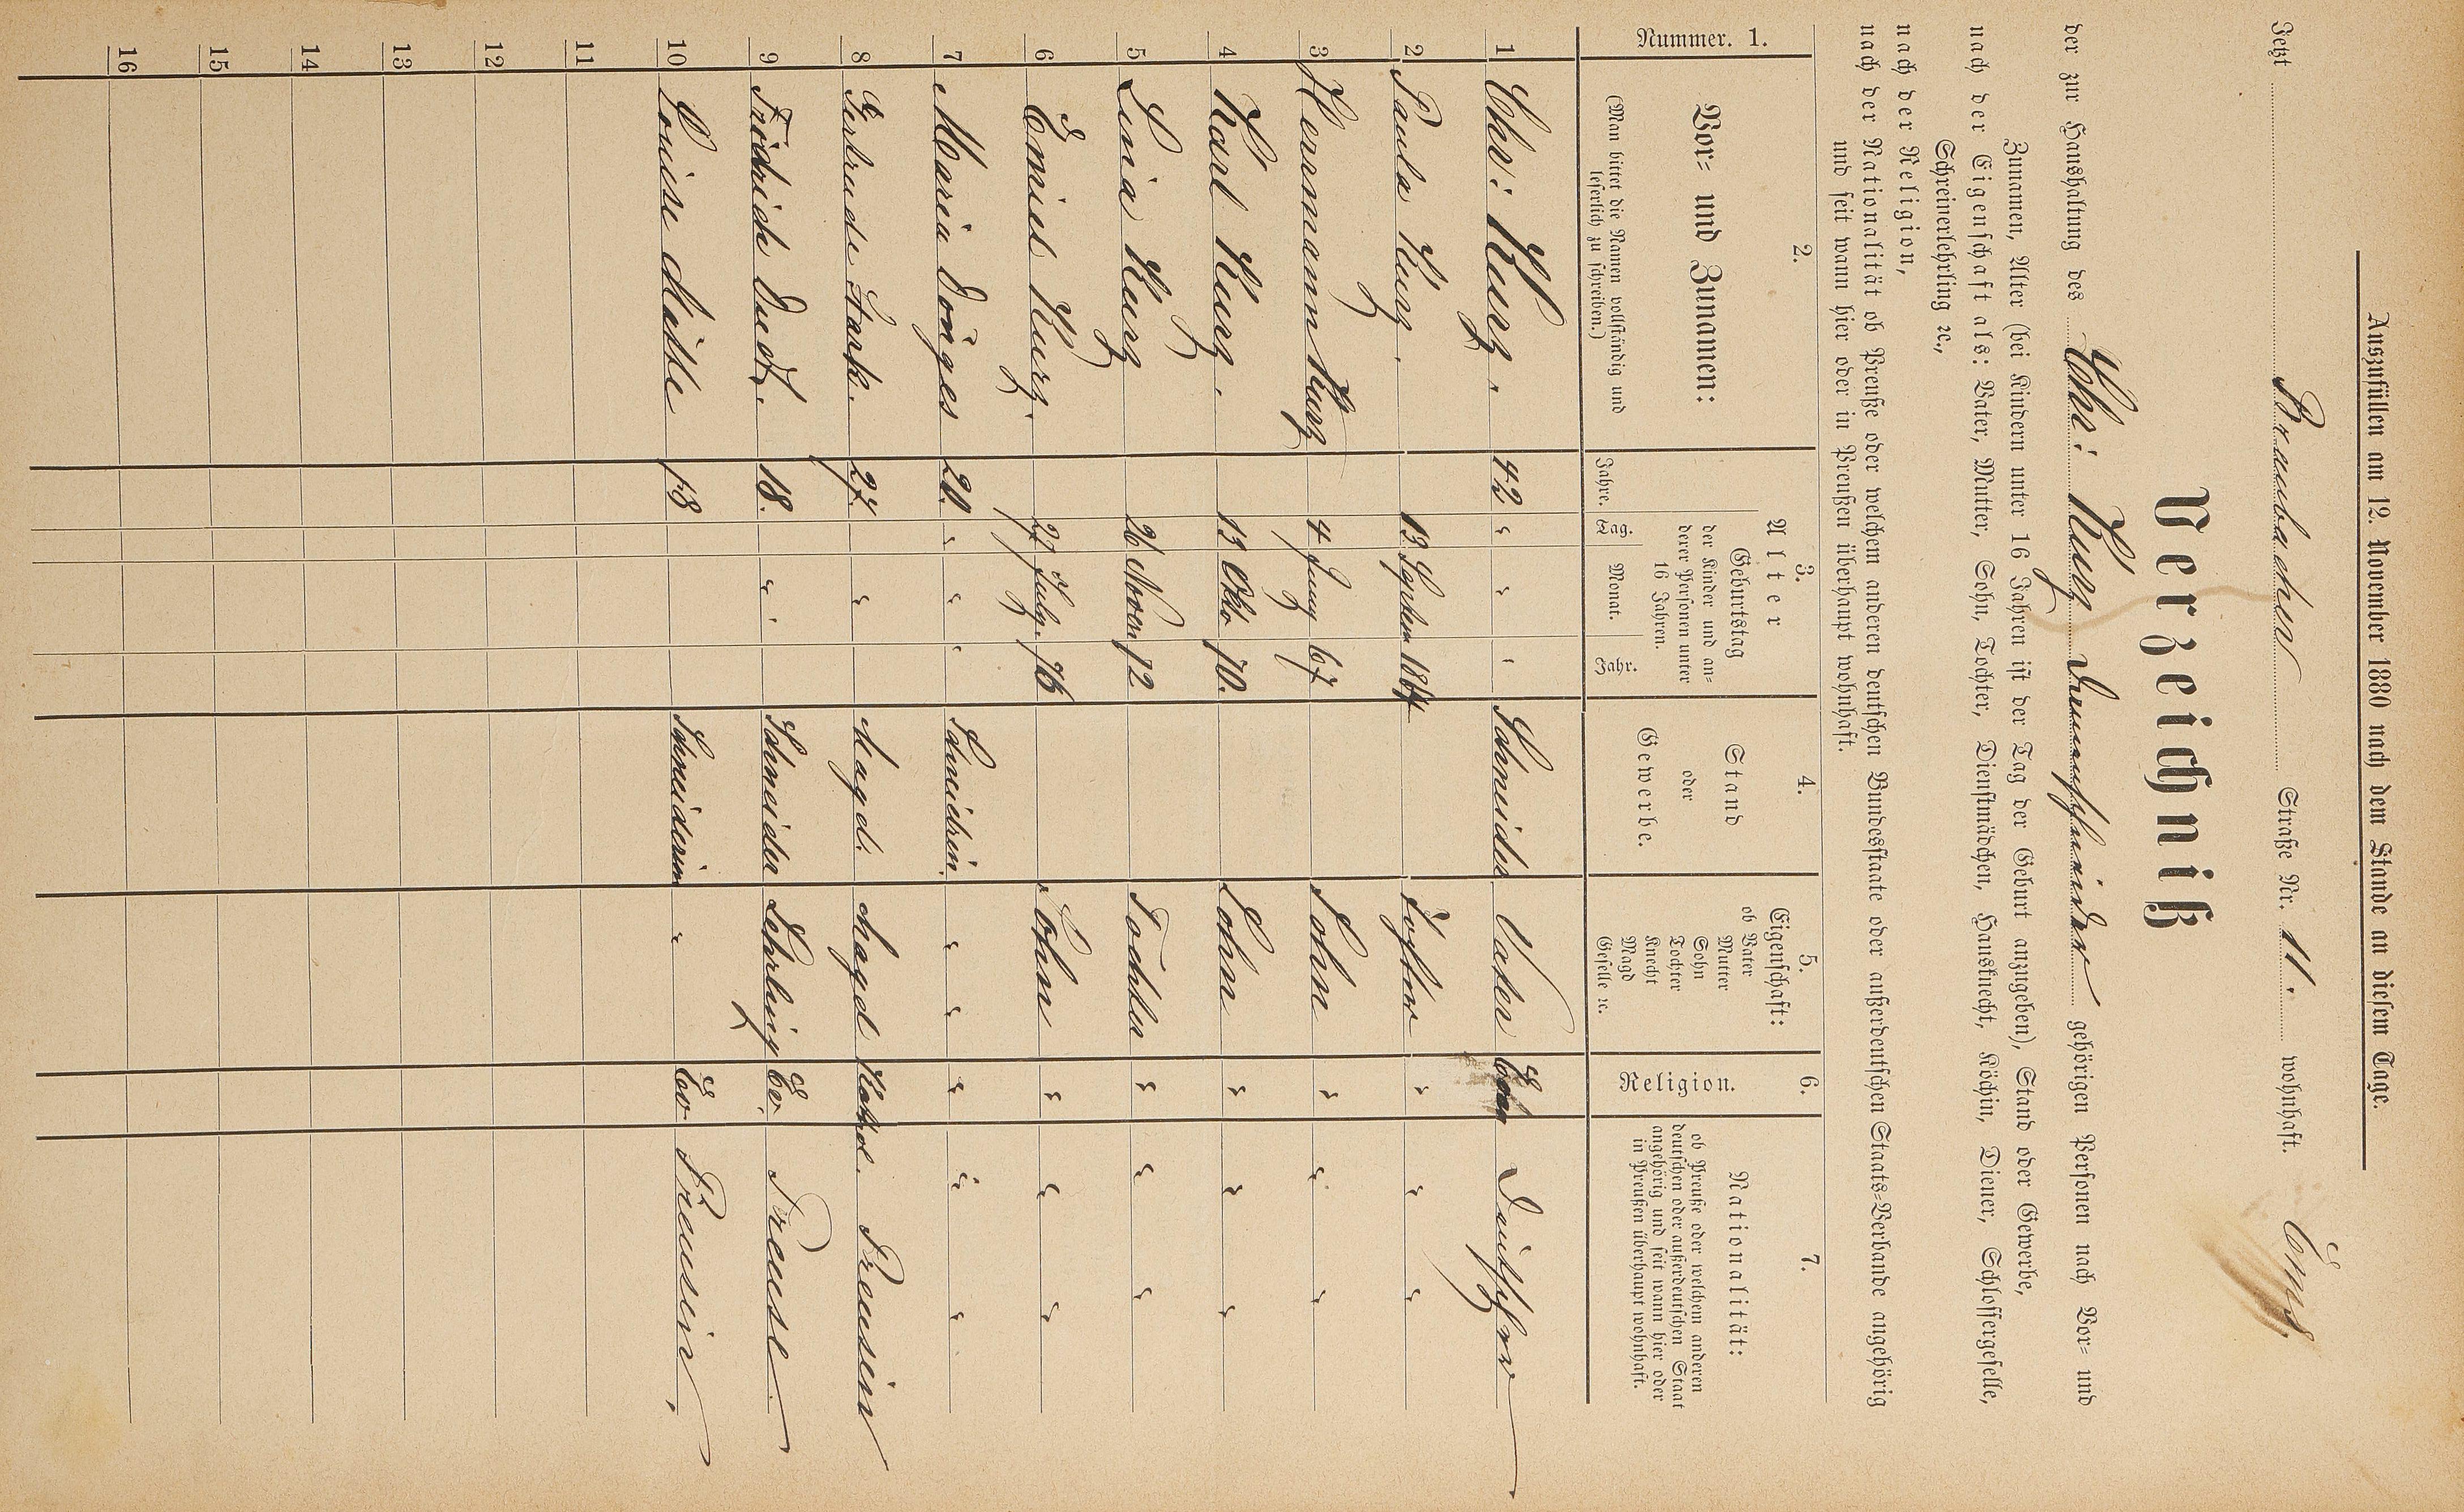 Auszufüllen am 12. November 1880 nach dem Stande an diesem Tage.
Jetzt Braubacher Straße Nr. 11. wohnhaft. Ems
Verzeichniß
der zur Haushaltung des Chr: Kurz Damenschneider gehörigen Personen nach Vor- und
Zunamen, Alter (bei Kindern unter 16 Jahren ist der Tag der Geburt anzugeben), Stand oder Gewerbe,
nach der Eigenschaft als: Vater, Mutter, Sohn, Tochter, Dienstmädchen, Hausknecht, Köchin, Diener, Schlossergeselle,
Schreinerlehrling ꝛc.,
nach der Religion,
nach der Nationalität ob Preuße oder welchem anderen deutschen Bundesstaate oder außerdeutschen Staats-Verbande angehörig
und seit wann hier oder in Preußen überhaupt wohnhaft.
Nummer. 1.
2.
Vor- und Zunamen:
(Man bittet die Namen vollständig und
leserlich zu schreiben.)
3.
Alter
Jahre.
Geburtstag
der Kinder und an-
derer Personen unter
16 Jahren.
Tag. Monat. Jahr.
4.
Stand
oder
Gewerbe.
5.
Eigenschaft:
ob Vater
Mutter
Sohn
Tochter
Knecht
Magd
Geselle ꝛc.
6.
Religion.
7.
Nationalität:
ob Preuße oder welchem anderen
deutschen oder außerdeutschen Staat
angehörig und seit wann hier oder
in Preußen überhaupt wohnhaft.
1 Chr: Kurz. 42 " " " Schneider Vater Evan Deutscher
2 Paula Kurz. 13 Septem 1864 Tochter " " "
3 Hermann Kurz 4 Juny 67 Sohn " " "
4 Karl Kurz. 13 Okto 70. Sohn " " "
5 Lina Kurz 26 Novem 72 Tochter " " "
6 Emiel Kurz. 27 July. 76 Sohn " " "
7 Maria Dönges 20. " " " Schneidrin. " " " " "
8 Gertrude Stark. 27. " Magd. Magd Kathol. Preusin
9 Friedrich Duct. 18. " " Schneider Lehrling Ev. Preuse
10 Louise Maste 18 Schneiderin " Ev. Preusin,
11
12
13
14
15
16